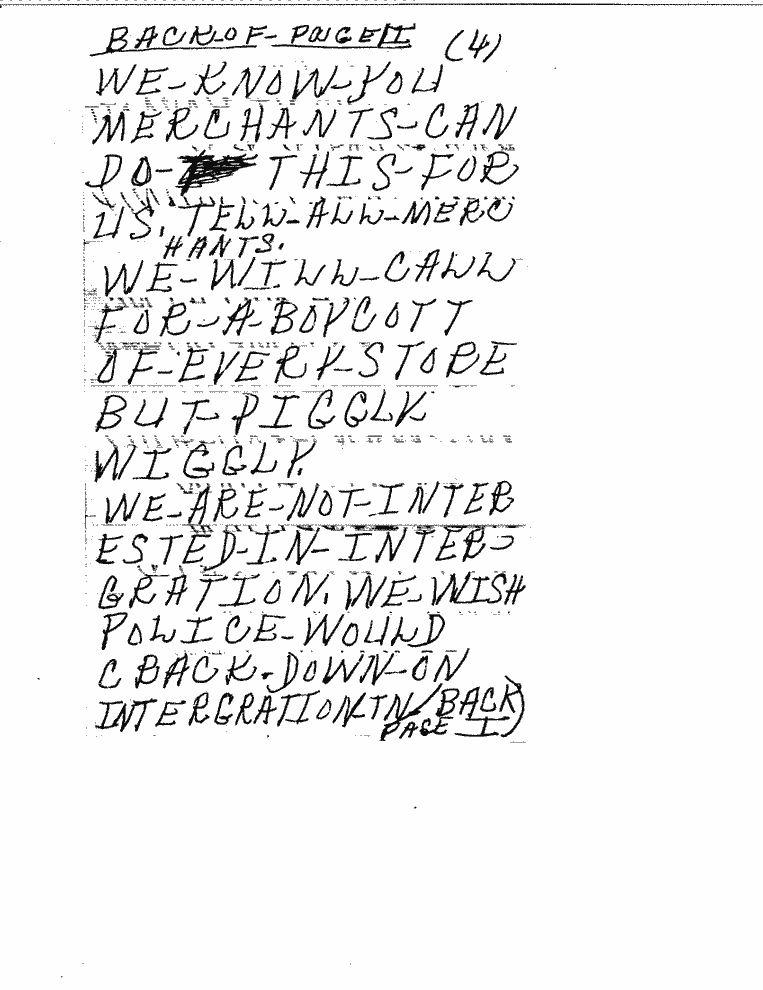 BACK-OF-PAGE II (4)
WE-KNOW-YOU
MERCHANTS-CAN
DO- THIS-FOR
US. TELL-ALL-MERC
HANTS.
WE-WILL-CALL
FOR-A-BOYCOTT
OF-EVERY-STORE
BUT-PIGGLY
WIGGLY.
WE-ARE-NOT-INTER
ESTED-IN-INTER-
GRATION. WE-WISH
POLICE-WOULD
CBACK-DOWN-ON
INTERGRATION-IN/BACK)
PAGE I)